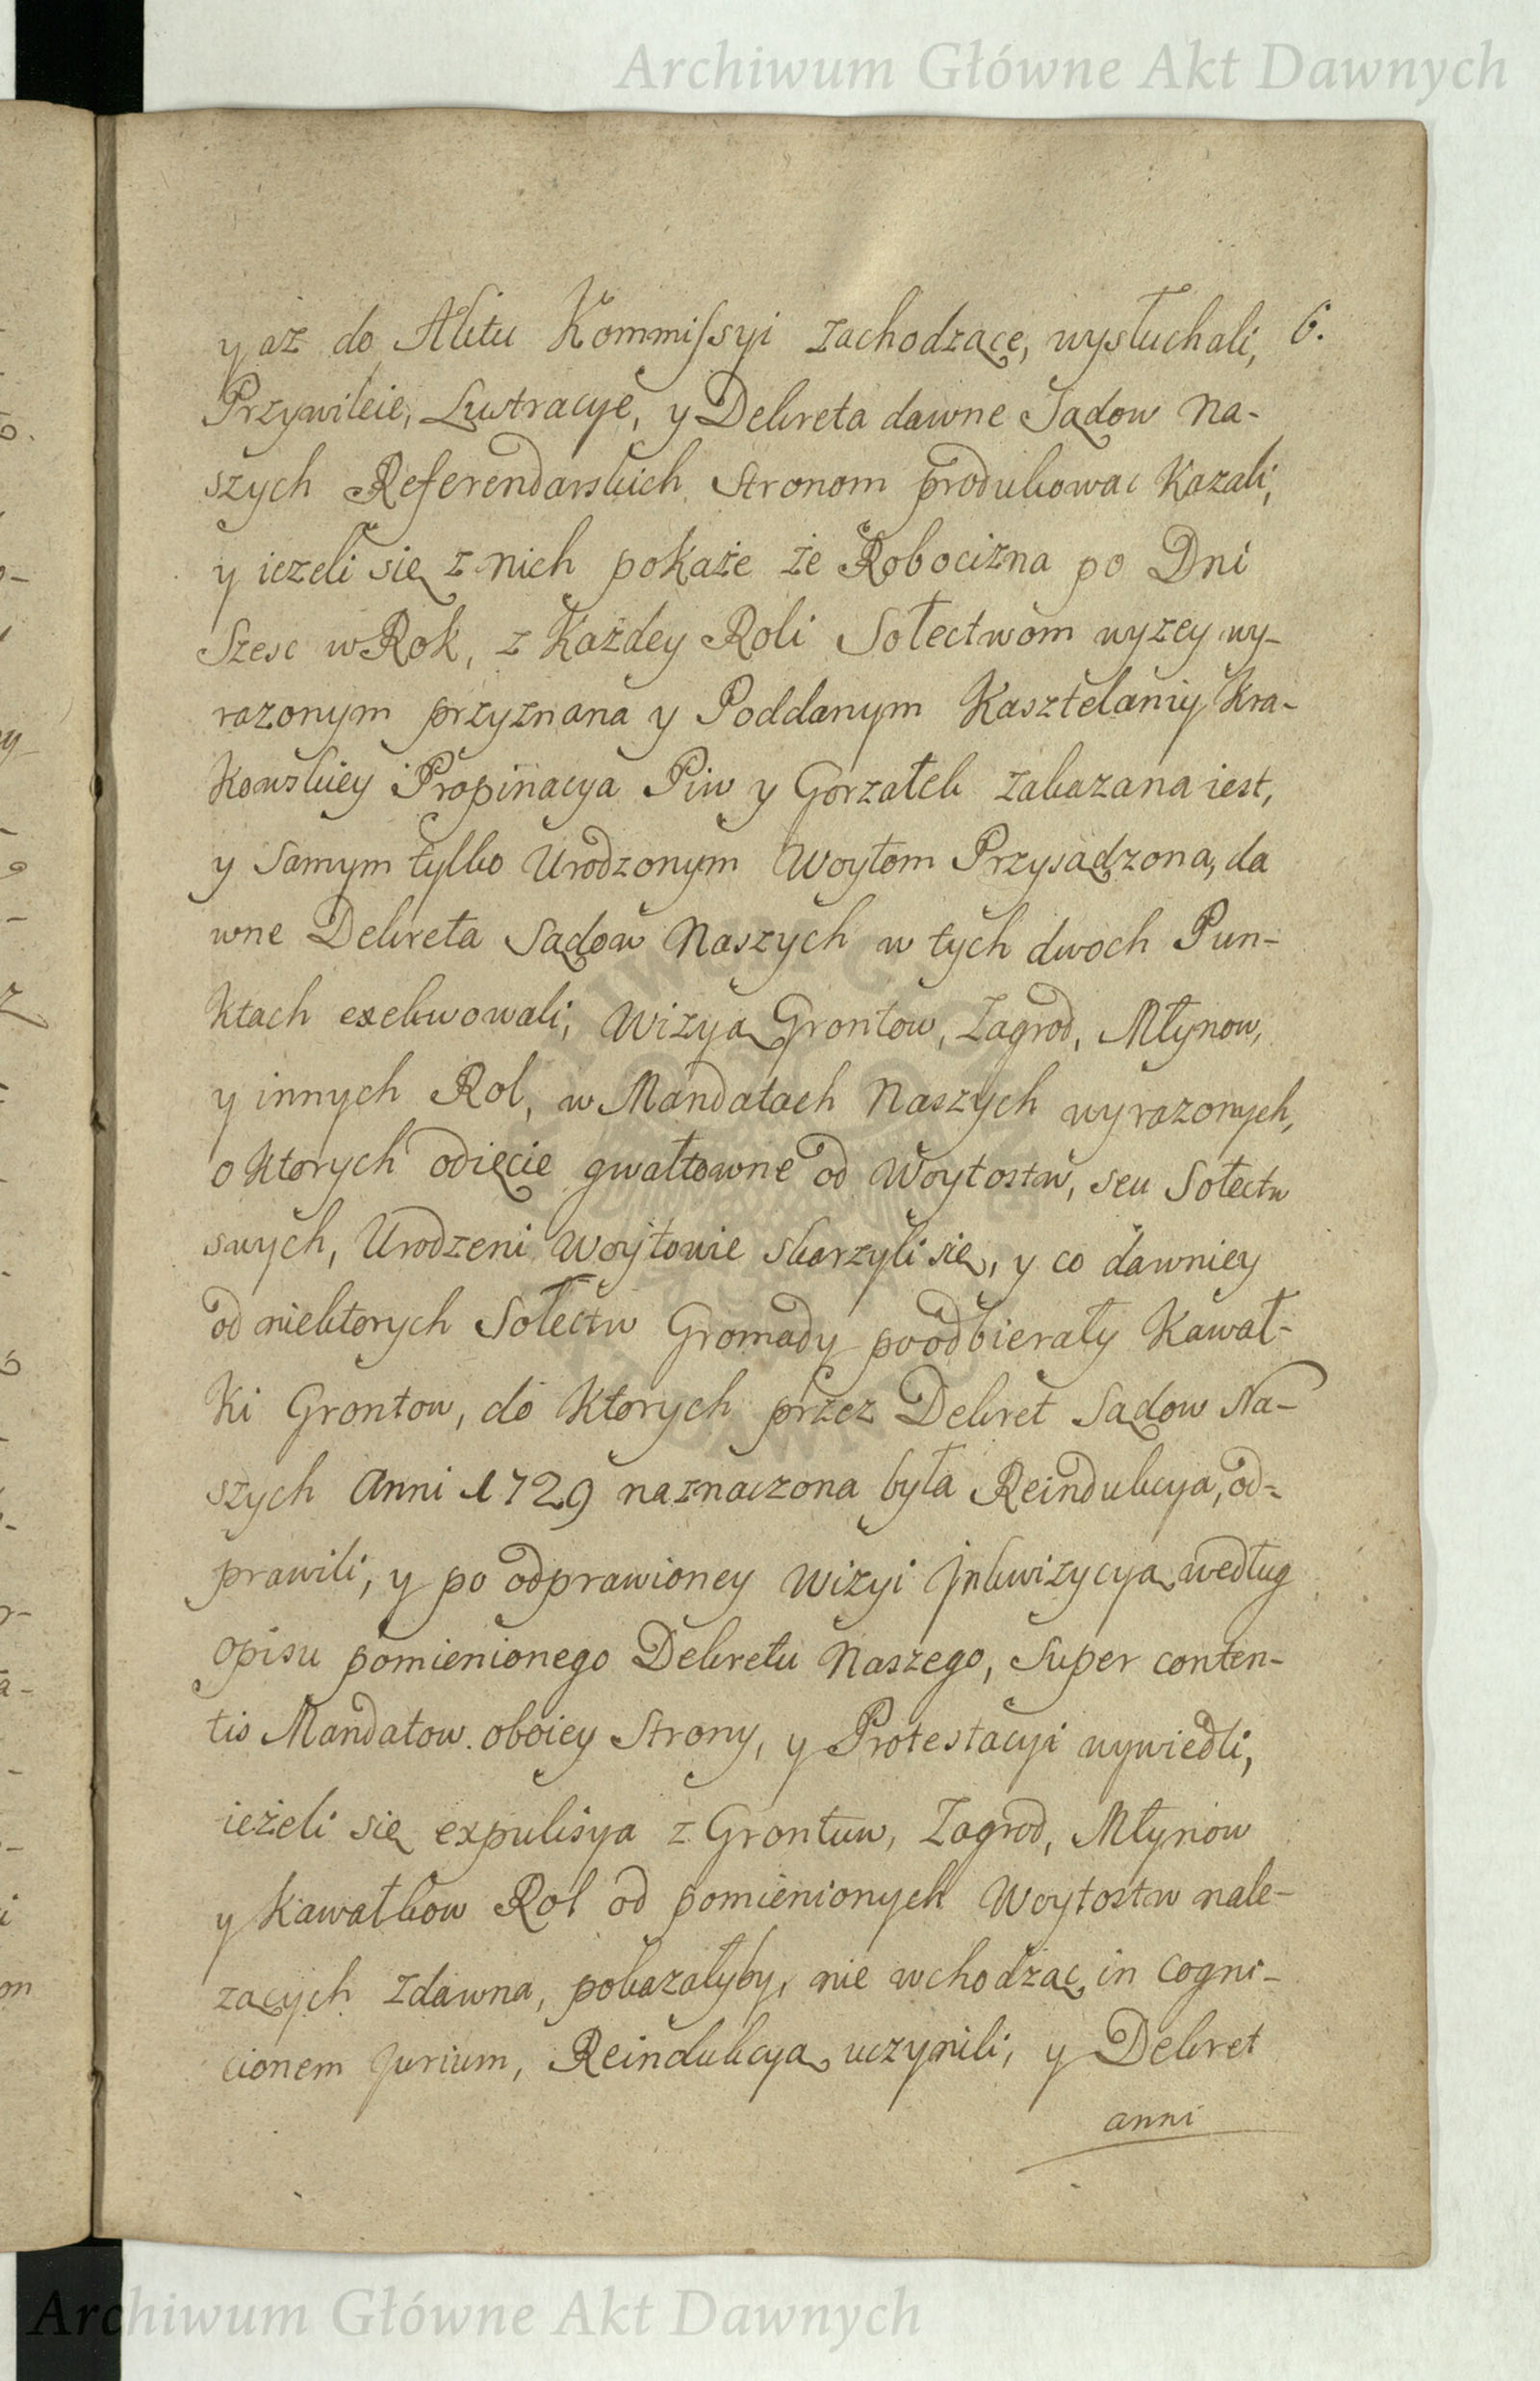 Archiwum Główne Akt Dawnych
y aż do Aktu Kommissyi zachodzące, wysłuchali, 6.
Przywileie, Lustracye, y Dekreta dawne Sądow Na-
szych Referendarskich Stronom produkowac Kazali,
y iezeli się z nich pokaże że Robocizna po Dni
Szesc w Rok, z Każdey Roli Sołectwom wyzey wy-
razonym przyznana y Poddanym Kasztelaniy Kra-
Kowskiey Propinacya Piw y Gorzałek zakazana iest,
y Samym tylko Urodzonym Woytom Przysądzona, da
wne Dekreta Sądow Naszych w tych dwoch Pun-
Ktach exekwowali, Wizyą Grontow, Zagrod, Młynow,
y innych Rol, w Mandatach Naszych wyrazonych,
o Ktorych odięcie gwałtowne od Woytostw, seu Sołectw
swych, Urodzeni Woytowie skarzyli się, y co dawniey
od niektorych Sołectw Gromady poodbierały Kawał-
Ki Grontow, do Ktorych przez Dekret Sądow Na-
szych Anni 1729 naznaczona była Reindukcya, od-
prawili, y po odprawioney Wizyi Inkwizycyą według
opisu pomienionego Dekretu Naszego, Super conten-
tis Mandatow oboiey Strony, y Protestacyi wywiedli,
ieżeli się expulisya z Grontuw, Zagrod, Młynow
y Kawałkow Rol od pomienionych Woytostw nale-
zących zdawna, pokazałyby, nie wchodząc in cogni-
cionem Jurium, Reindukcyą uczynili, y Dekret
anni
Archiwum Główne Akt Dawnych